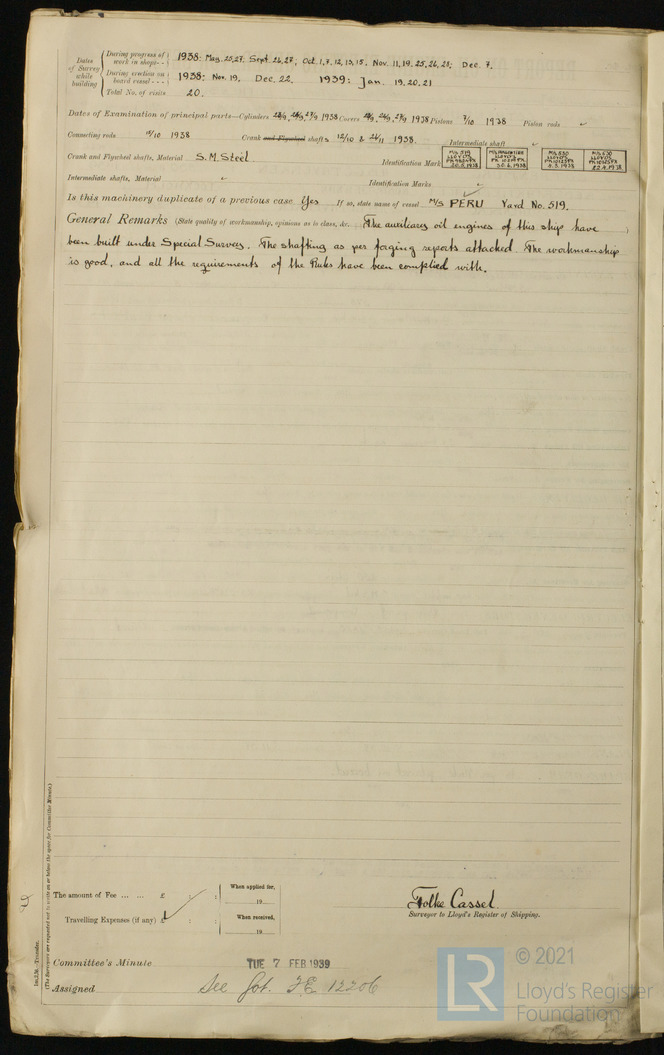 Dates of Survey while building
During progress of work in shops - - 1938: May. 25,27. Sept. 26,27; Oct. 1,7,12,13,15. Nov. 11,19,25,26,28; Dec. 7.
During erection on board vessel - - - 1938: Nov. 19, Dec. 22. 1939: Jan. 19.20.21
Total No. of visits 20.
Dates of Examination of principal parts—Cylinders 1938 Covers 1938 Pistons 7/10 1938 Piston rods
Connecting rods 1938 Crank and Flywheel shafts 12/10 & 26/11 1938. Intermediate shaft
Crank and Flywheel shafts, Material S.M. Steel Identification Mark
M/S 519 LLOYD'S 20.5.1938
LLOYD'S 30.6.1938
M/S 530 LLOYD'S
M/S 530 LLOYD'S
Intermediate shafts, Material Identification Marks
Is this machinery duplicate of a previous case Yes If so, state name of vessel M/S PERU Yard No. 519.
General Remarks (State quality of workmanship, opinions as to class, &c. The auxiliary oil engines of this ship have
been built under Special Survey. The shafting as per forging reports attached. The workmanship
is good, and all the requirements of the Rules have been complied with.
1m.7.36. Transfer.
(The Surveyors are requested not to write on or below the space for Committee Minute.)
The amount of Fee ... ... £ : :
When applied for,
19
Travelling Expenses (if any) £ : :
When received,
19
Folke Cassel.
Surveyor to Lloyd's Register of Shipping.
Committee's Minute TUE 7 FEB 1939
Assigned See Got. F.E. 12206
LR
© 2021
Lloyd's Register
Foundation